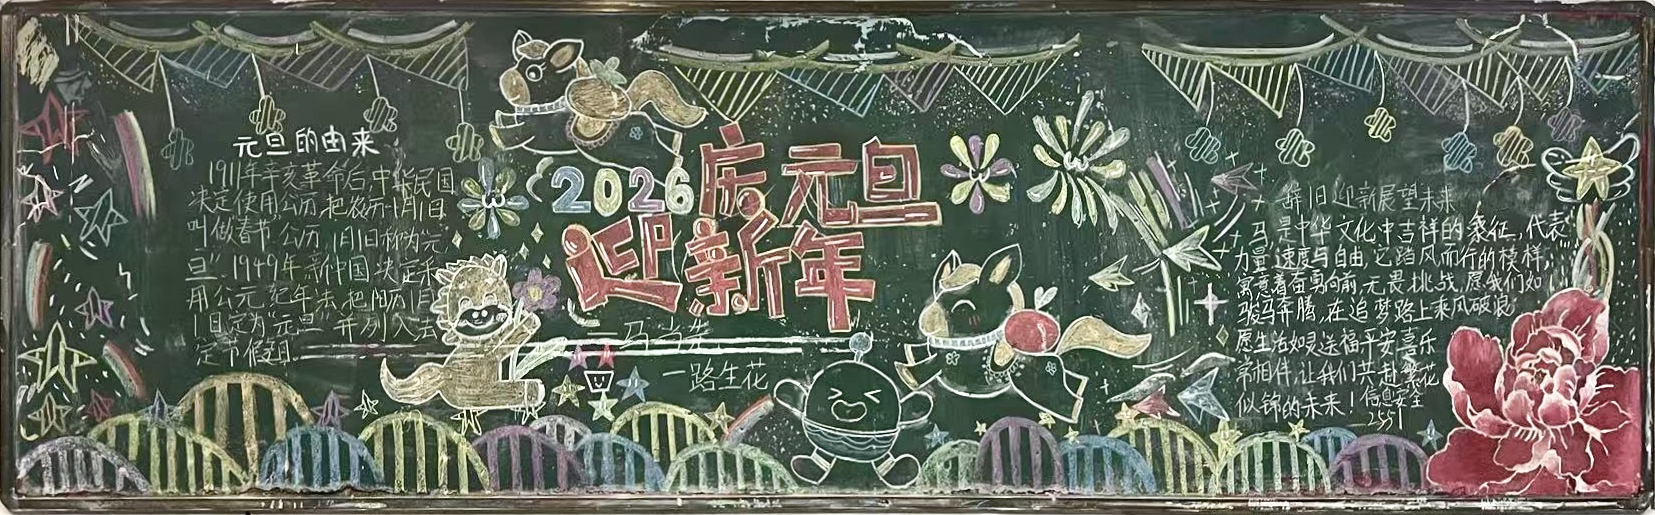 元旦的由来
1911年辛亥革命后,中华民国
决定使用公历,把农历1月1日
叫做春节"公历1月1日称为"元
旦"1949年新中国决定采
用公元纪年法,把阳历1月
1日定为"元旦"并列入法
定节假日.
2026庆元旦
迎新年
一马当先
一路生花
辞旧迎新展望未来
马是中华文化中吉祥的象征,代表
力量速度与自由,它踏风而行的模样,
寓意着奋勇向前无畏挑战,愿我们如
骏马奔腾,在追梦路上乘风破浪
愿生活如灵送福平安喜乐
常相伴,让我们共赴繁花
似锦的未来!信息安全
2551